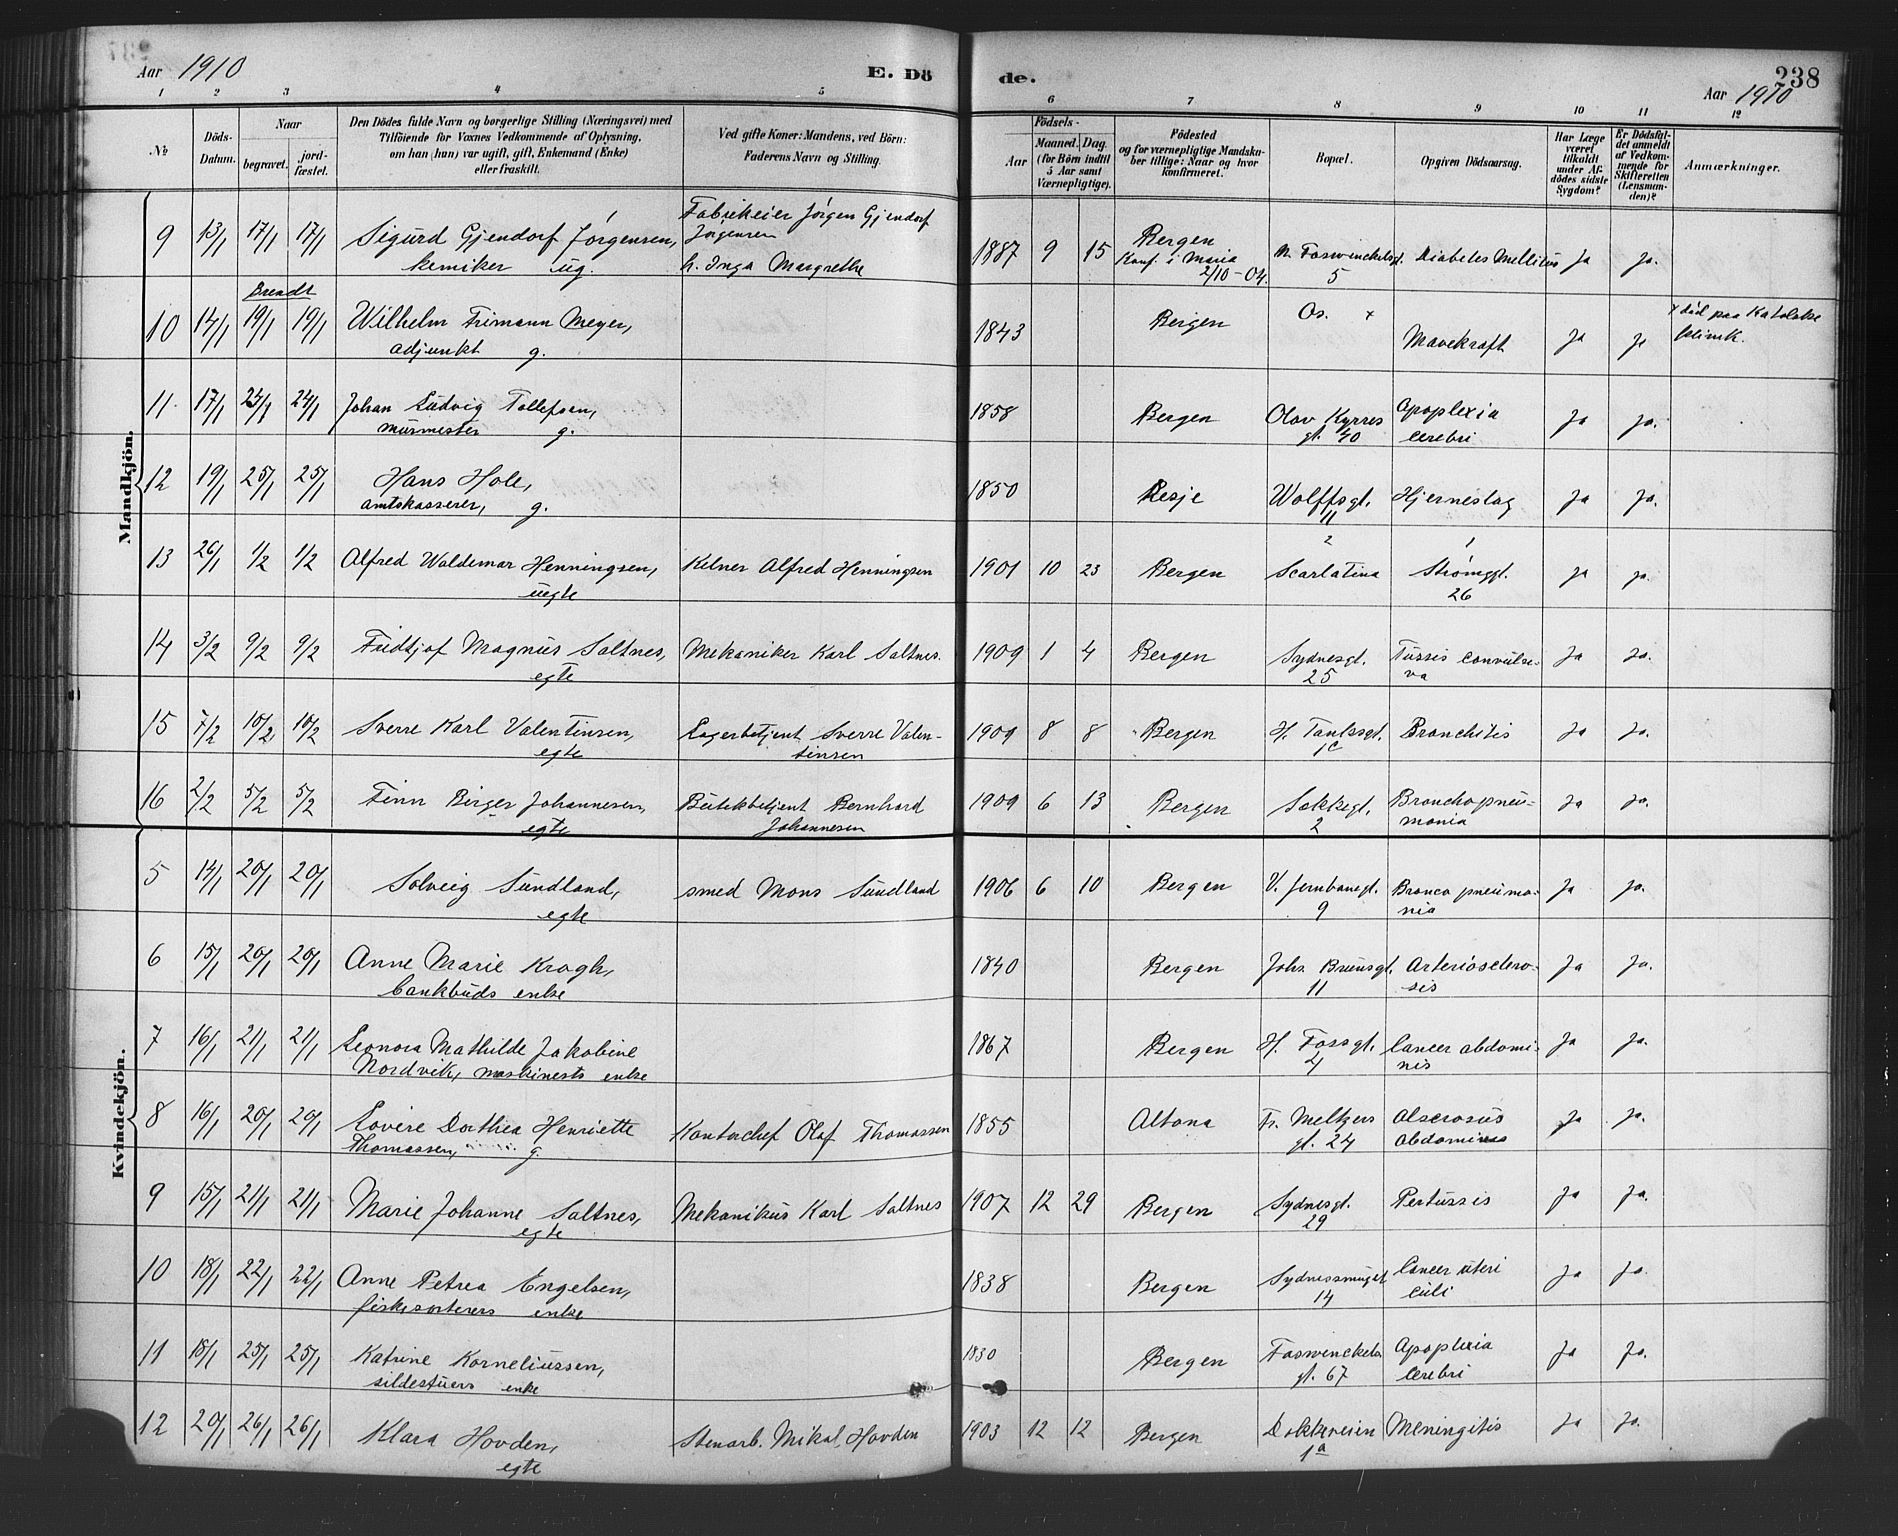 Aar 1910
E. Dö
de.
238
Aar 1910
1 2 3 4 5 6 7 8 9 10 11 12
No
Döds-Datum.
Naar
begravet.
jord-fæstet.
Den Dödes fulde Navn og borgerlige Stilling (Næringsvei) med
Tilföiende for Voxnes Vedkommende af Oplysning,
om han (hun) var ugift, gift, Enkemand (Enke)
eller fraskilt.
Ved gifte Koner: Mandens, ved Börn:
Faderens Navn og Stilling.
Födsels-
Aar
Maaned. Dag.
(for Börn indtil
5 Aar samt
Værnepligtige).
Födested
og for værnepligtige Mandska-
ber tillige: Naar og hvor
konfirmeret.
Bopæl.
Opgiven Dödsaarsag.
Har Læge
været
tilkaldt
under Af-
dödes sidste
Sygdom?
Er Dödsfal-
det anmeldt
af Vedkom-
mende for
Skifteretten
(Lensman-
den)?
Anmærkninger.
Mandkjön.
9 13/1 17/1 17/1 Sigurd Gjendorf Jørgensen, kemiker ug. Fabrikeier Jörgen Gjendorf Jörgensen h. Inga Margrethe 1887 9 15 Bergen Konf. i Maria 2/10-04. N. Foswinckelsgt. 5 Diabetes Mellitus Ja Ja.
Brendt
10 14/1 19/1 19/1 Wilhelm Frimann Meyer, adjunkt g. 1843 Bergen Os. x Mavekræft Ja Ja x død paa Katolske klinik.
11. 17/1 24/1 24/1 Johan Ludvig Tollefsen, murmester g. 1858 Bergen Olav Kyrres gt. 40 Apoplexia cerebri Ja Ja.
12 19/1 25/1 25/1 Hans Hole, amtskasserer, g. 1850 Resje Wolffsgt. 11 Hjerneslag Ja Ja.
13 26/1 1/2 1/2 Alfred Waldemar Henningsen, uegte Kelner Alfred Henningsen 1901 10 23 Bergen 2 Scarlatina 1 Strømgt. 26 Ja Ja.
14 3/2 9/2 9/2 Fridtjof Magnus Saltnes, egte Mekaniker Karl Saltnes. 1909 1 4 Bergen Sydnesgt. 25 Tussis convulsi-va Ja Ja.
15 7/2 10/2 10/2 Sverre Karl Valentinsen, egte Lagerbetjent Sverre Valen-tinsen 1909 8 8 Bergen H. Tanksgt. 1c Bronchitis Ja Ja.
16 2/2 5/2 5/2 Finn Birger Johannesen, egte Butikbetjent Bernhard Johannesen 1909 6 13 Bergen Løkkegt. 2 Bronchopneu-monia Ja Ja.
Kvindekjön.
5 14/1 20/1 20/1 Solveig Sundland, egte smed Mons Sundland 1906 6 10 Bergen V. Jernbanegt. 9 Bronco pneumo-nia Ja Ja.
6 15/1 20/1 20/1 Anne Marie Krogh, bankbuds enke 1840 Bergen Johs Brunsgt. 11 Arterioschlero-sis Ja Ja.
7 16/1 21/1 21/1 Leonora Mathilde Jakobine Nordvik, maskinists enke 1867 Bergen H. Fossgt. 4 Cancer abdomi-nis Ja Ja.
8 16/1 20/1 20/1 Lovise Dorthea Henriette Thomassen, g. Kontorchef Olaf Thomassen 1855 Altona Fr. Meltzers gt. 24 abdominis Ja Ja.
9 15/1 21/1 21/1 Marie Johanne Saltnes, egte Mekanikus Karl Saltnes 1907 12 29 Bergen Sydnesgt. 29 Pertussis Ja Ja.
10 18/1 22/1 22/1 Anne Petrea Engelsen, fiskesorterers enke 1838 Bergen Sydnessmuget 14 Cancer uteri Ja Ja.
11 18/1 25/1 25/1 Katrine Korneliussen, sildestuers enke 1830 Bergen Foswinckels gt. 67 Apoplexia cerebri Ja Ja.
12 20/1 26/1 26/1 Klara Hovden, egte Stenarb. Mikal Hovden 1903 12 12 Bergen Dokkeveien 1a Meningitis Ja Ja.